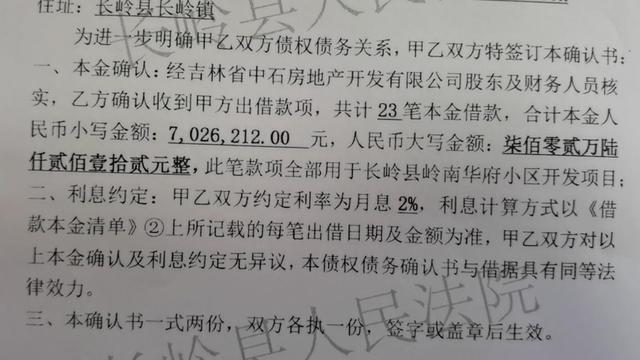 住址：长岭县长岭镇
为进一步明确甲乙双方债权债务关系，甲乙双方特签订本确认书：
一、本金确认：经吉林省中石房地产开发有限公司股东及财务人员核
实，乙方确认收到甲方出借款项，共计 23 笔本金借款，合计本金人
民币小写金额：7,026,212.00 元，人民币大写金额：柒佰零贰万陆
仟贰佰壹拾贰元整，此笔款项全部用于长岭县岭南华府小区开发项目；
二、利息约定：甲乙双方约定利率为月息 2%，利息计算方式以《借
款本金清单》②上所记载的每笔出借日期及金额为准，甲乙双方对以
上本金确认及利息约定无异议，本债权债务确认书与借据具有同等法
律效力。
三、本确认书一式两份，双方各执一份，签字或盖章后生效。
长岭县人民法院